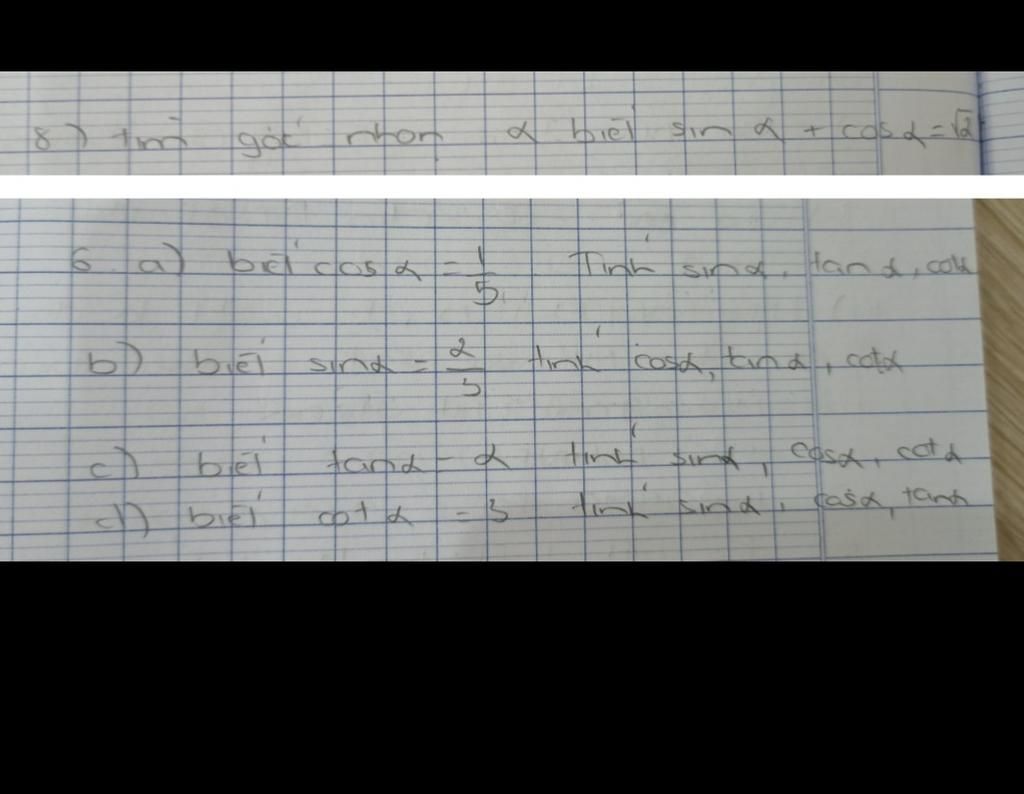 8) tìm góc nhọn α biết sin α + cos α = √2
6 a) biết cos α = 1/5 Tính sin α, tan α, cot α
b) biết sin α = 2/3 tính cos α, tan α, cot α
c) biết tan α = 2 tính sin α, cos α, cot α
d) biết cot α = 3 tính sin α, cos α, tan α